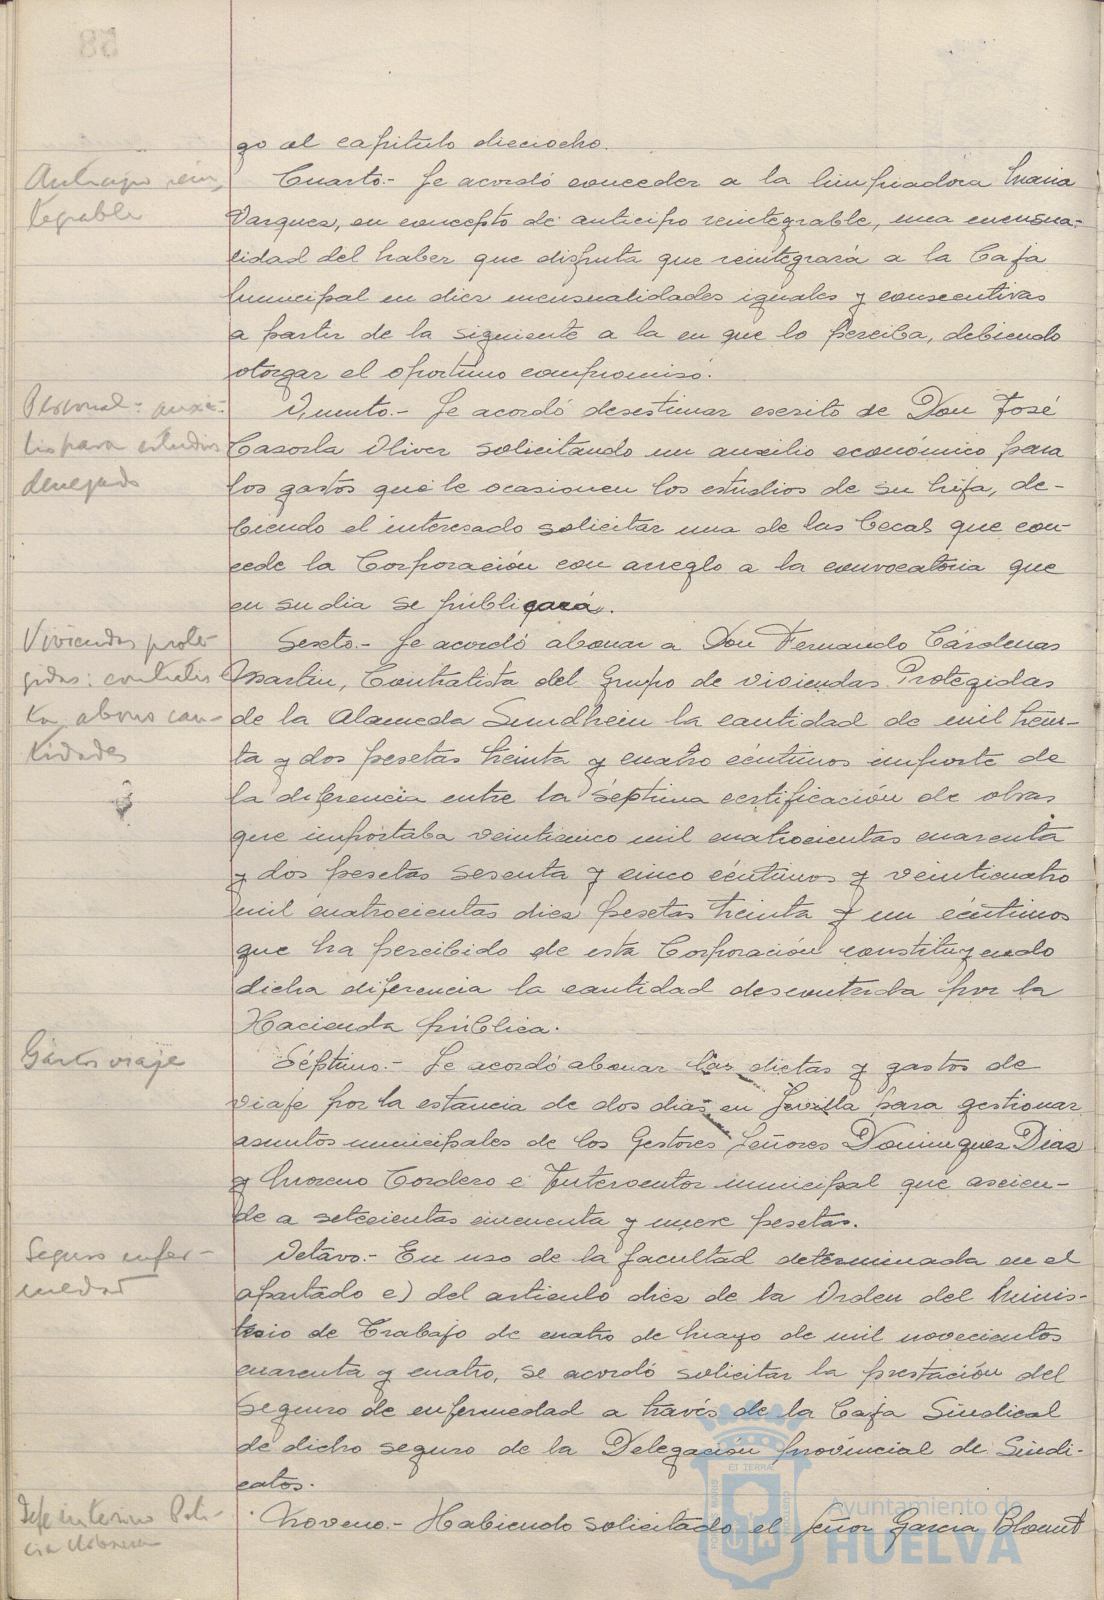 go al capítulo dieciocho.
Anticipo rein-
tegrable
Cuarto.- Se acordó conceder a la limpiadora Maria
Vazquez, en concepto de anticipo reintegrable, una mensua-
lidad del haber que disfruta que reintegrará a la Caja
Municipal en diez mensualidades iguales y consecutivas
a partir de la siguiente a la en que lo perciba, debiendo
otorgar el oportuno compromiso.
Personal: auxi-
lio para estudios
denegado
Quinto.- Se acordó desestimar escrito de Don José
Casorla Oliver solicitando un auxilio económico para
los gastos que le ocasionen los estudios de su hija, de-
biendo el interesado solicitar una de las becas que con-
cede la Corporación con arreglo a la convocatoria que
en su dia se publicará.
Viviendas prote-
gidas: contratis-
ta abono can-
tidades
Sexto.- Se acordó abonar a Don Fernando Cárdenas
Martin, Contratista del Grupo de viviendas Protegidas
de la Alameda Sundhein la cantidad de mil trein-
ta y dos pesetas treinta y cuatro céntimos importe de
la diferencia entre la séptima certificación de obras
que importaba veinticinco mil cuatrocientas cuarenta
y dos pesetas sesenta y cinco céntimos y veinticuatro
mil cuatrocientas diez pesetas treinta y un céntimos
que ha percibido de esta Corporación constituyendo
dicha diferencia la cantidad descontada por la
Hacienda pública.
Gastos viaje
Séptimo.- Se acordó abonar las dietas y gastos de
viaje por la estancia de dos dias en Sevilla para gestionar
asuntos municipales de los Gestores Señores Dominguez Diaz
y Moreno Cordero e Interventor municipal que ascien-
de a setecientas cincuenta y nueve pesetas.
Seguro enfer-
medad
Octavo.- En uso de la facultad determinada en el
apartado e) del articulo diez de la Orden del Minis-
terio de Trabajo de cuatro de Mayo de mil novecientos
cuarenta y cuatro, se acordó solicitar la prestación del
Seguro de enfermedad a través de la Caja Sindical
de dicho seguro de la Delegación provincial de Sindi-
catos.
Jefe interino Poli-
cia Urbana
Noveno.- Habiendo solicitado el Señor Garcia Blount
Ayuntamiento de
HUELVA